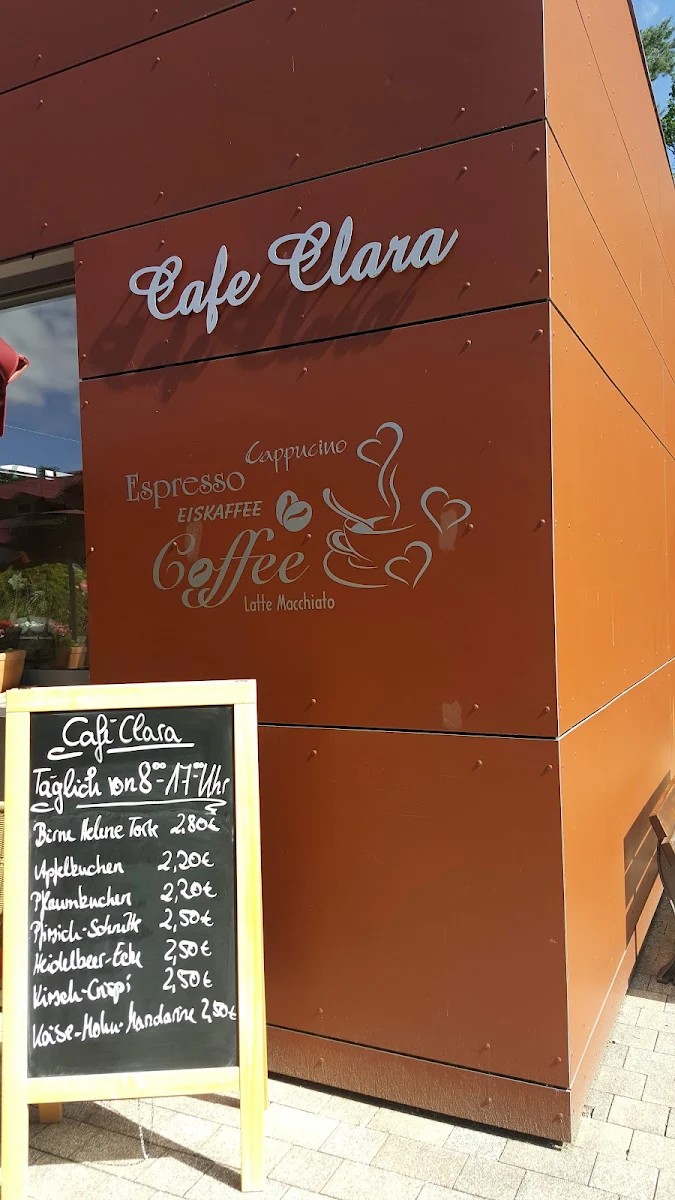 Cafe Clara
Cappucino
Espresso
EISKAFFEE
Coffee
Latte Macchiato
Café Clara
Täglich von 8⁰⁰-17⁰⁰ Uhr
Birne Helene Tork 2.80€
Apfelkuchen 2,20€
Pflaumkuchen 2,20€
Pfirsich-Schnitte 2,50€
Heidelbeer-Ecke 2,50€
Kirsch-Crispi 2,50€
Käse-Mohn-Mandarine 2,50€